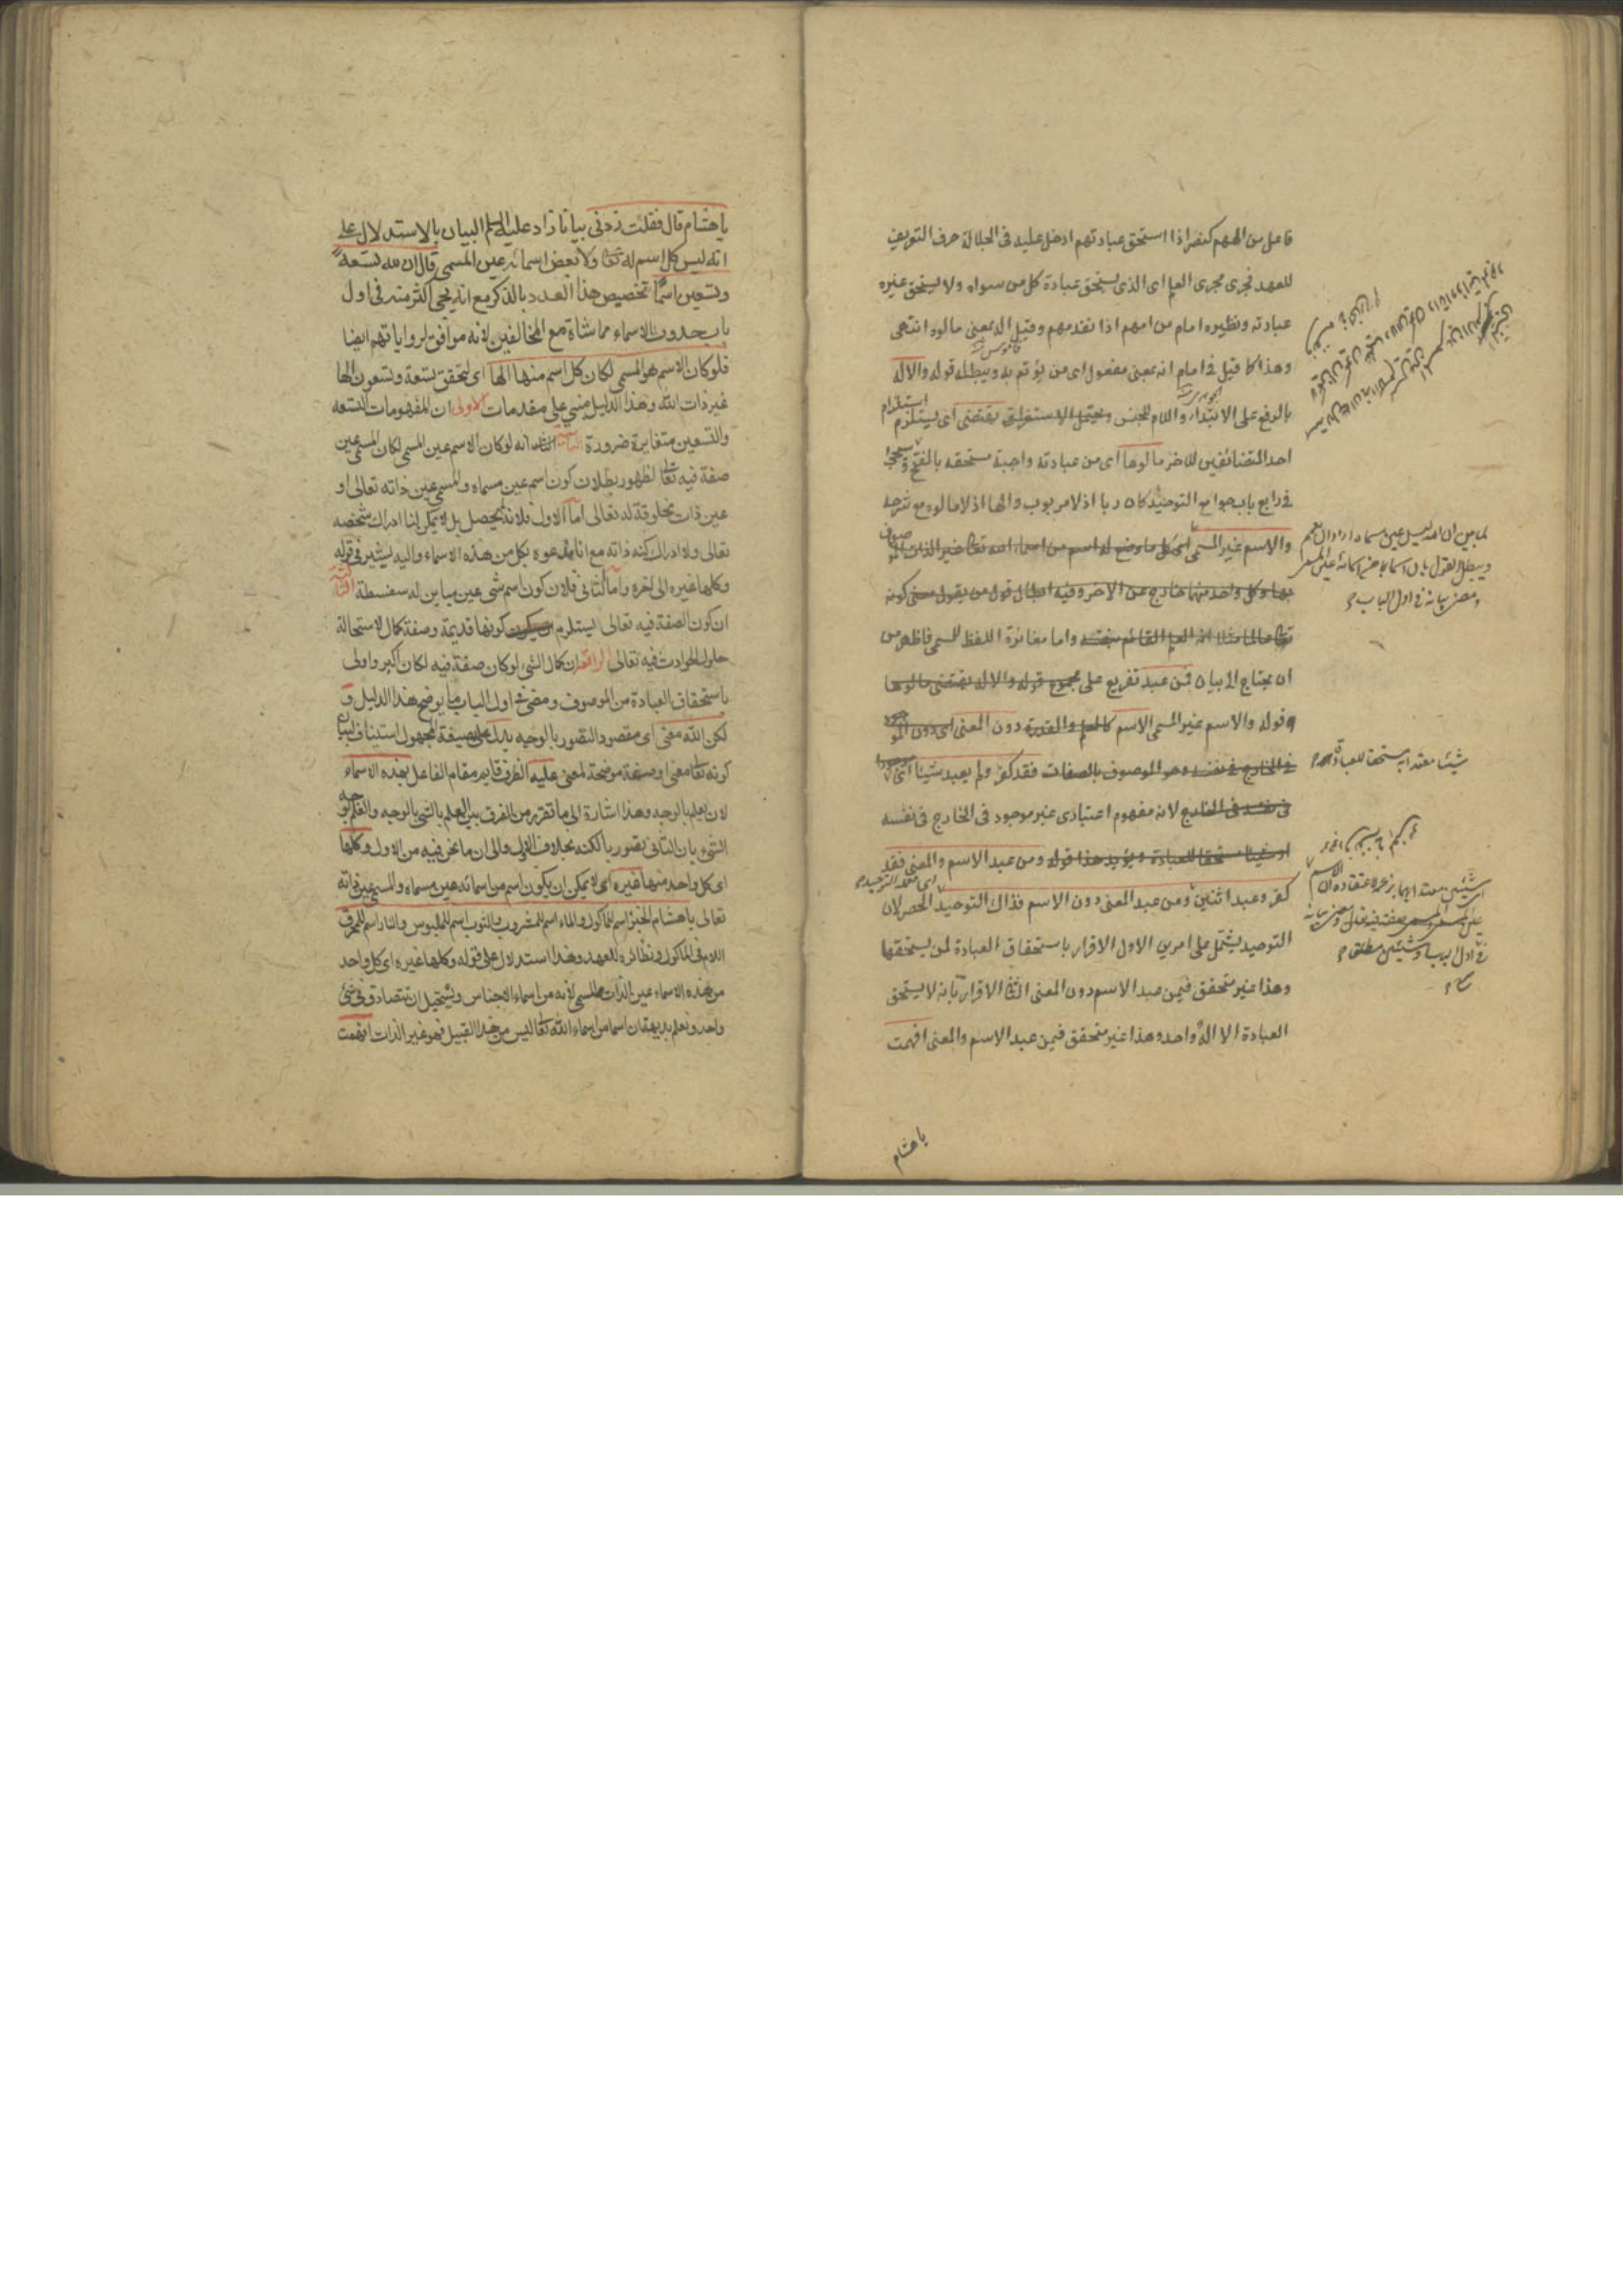 فاعل من الههم كنصر اذا استحق عبادتهم ادخل عليه فى الجلالة حرف التعريف
للعهد فجرى مجرى العلم اى الذى يستحق عبادة كل من سواه ولا يستحق غيره
عبادته ونظيره امام من امهم اذا تقدمهم وقيل اله بمعنى مالوه انتهى
وهذا كما قيل فى امام انه بمعنى مفعول اى من يؤتم به ويبطله قوله والاله
بالرفع على الابتداء واللام للجنس ويحتمل الاستغراق يقتضى اى يستلزم
استلزام
احد المتضائفين للاخر مالوها اى من عبادته واجبة مستحقه بالفتح وسيجئ
فى رابع باب جوامع التوحيد كان ربا اذ لا مربوب والها اذ لا مالوه مع شرحه
والاسم غير المسمى اى كل ما وضع له اسم من اسماء الله تعا غير الذات المو
صوف
بها وكل واحد منها خارج عن الاخر وفيه ابطال قول من يقول معنى كونه
تعا عالما مثلا انه العلم القائم بنفسه واما مغائرة اللفظ للمسمى فاظهر من
ان يحتاج الى بيان فمن عبد تفريع على مجموع قوله والاله يقتضى مالوها
وقوله والاسم غير المسمى الاسم كالعلم والقدرة دون المعنى اى دون المو
جود
فى الخارج فى نفسه وهو الموصوف بالصفات فقد كفر ولم يعبد شيئا اى
موجودا
فى نفسه فى الخارج لانه مفهوم اعتبارى غير موجود فى الخارج فى نفسه
او شيئا مستحقا للعبادة ويؤيد هذا قوله ومن عبد الاسم والمعنى فقد
كفر وعبد اثنين ومن عبد المعنى دون الاسم فذاك التوحيد الحصر لان
التوحيد يشتمل على امرين الاول الاقرار باستحقاق العبادة لمن يستحقها
وهذا غير متحقق فيمن عبد الاسم دون المعنى الثانى الاقرار بانه لا يستحق
العبادة الا اله واحد وهذا غير متحقق فيمن عبد الاسم والمعنى افهمت
يا هشام
لما بين ان الله ليس عين مسماه اراد ان يعمم
ويبطل القول بان
ومضى بيانه فى اول الباب
شيئا معتدا به مستحقا للعبادة
فى اول الباب او شيئين مطلقا
يا هشام قال فقلت زدنى بيانا زاد عليه السلم البيان بالاستدلال على
انه ليس كل اسم له تعا ولا بعض اسمائه عين المسمى قال ان لله تسعة
وتسعين اسما تخصيص هذا العدد بالذكر مع انه يجئ اكثر منه فى اول
باب حدوث الاسماء مماشاة مع المخالفين لانه موافق لرواياتهم ايضا
فلو كان الاسم هو المسمى لكان كل اسم منها الها اى لتحقق تسعة وتسعون الها
غير ذات الله وهذا الدليل مبنى على مقدمات الاولى ان المفهومات التسعه
والتسعين متغايرة ضرورة الثانية انه لو كان الاسم عين المسمى لكان المسمى عين
صفة فيه تعا لظهور بطلان كون اسم عين مسماه والمسمى عين ذاته تعالى او
عين ذات مخلوقة له تعالى اما الاول فلانه لا يحصل بل لا يمكن لنا ادراك شخصه
تعالى ولا ادراك كنه ذاته مع انا ندعوه بكل من هذه الاسماء واليه يشير فى قوله
وكلها غيره الى اخره واما الثانى فلان كون اسم شئ عين مباين له سفسطة الثالثة
ان كون الصفة فيه تعالى يستلزم كونها قديمة وصفة كمال لاستحالة
حلول الحوادث فيه تعالى الرابعة ان كمال الشئ لو كان صفة فيه لكان اكبر واولى
باستحقاق العبادة من الموصوف ومضى فى اول الباب ما يوضح هذا الدليل و
لكن الله معنى اى مقصود التصور بالوجه يدل على بصيغة المجهول استيناف لبيان
كونه تعا معنى او صفة موضحة لمعنى عليه الظرف قايم مقام الفاعل بهذه الاسماء
لان يعلم بالوجه وهذا اشارة الى ما تقرر من الفرق بين العلم بالشئ بالوجه والعلم بوجه
الشئ بان الثانى تصور بالكنه بخلاف الاول والى ان ما نحن فيه من الاول وكلها
اى كل واحد منها غيره اى لا يمكن ان يكون اسم من اسمائه عين مسماه والمسمى عين ذاته
تعالى يا هشام الخبز اسم للماكول والماء اسم للمشروب والثوب اسم للملبوس والنار اسم للمحرق
اللام فى الماكول ونظائره للعهد وهذا استدلال على قوله وكلها غيره اى كل واحد
من هذه الاسماء عين الذات المسمى لانه من اسماء الاجناس ويستحيل ان تتصادق فى شئ
واحد ونعلم بديهة ان اسما من اسماء الله تعا ليس من هذا القبيل فهو غير الذات افهمت